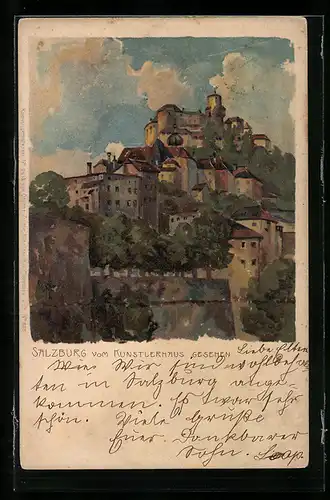 SALZBURG VOM KÜNSTLERHAUS GESEHEN
Liebe Eltern
Wir sind wohlbehal
ten in Salzburg ange-
kommen. Es war sehr
schön. Viele Grüße
Euer Dankbarer
Sohn.